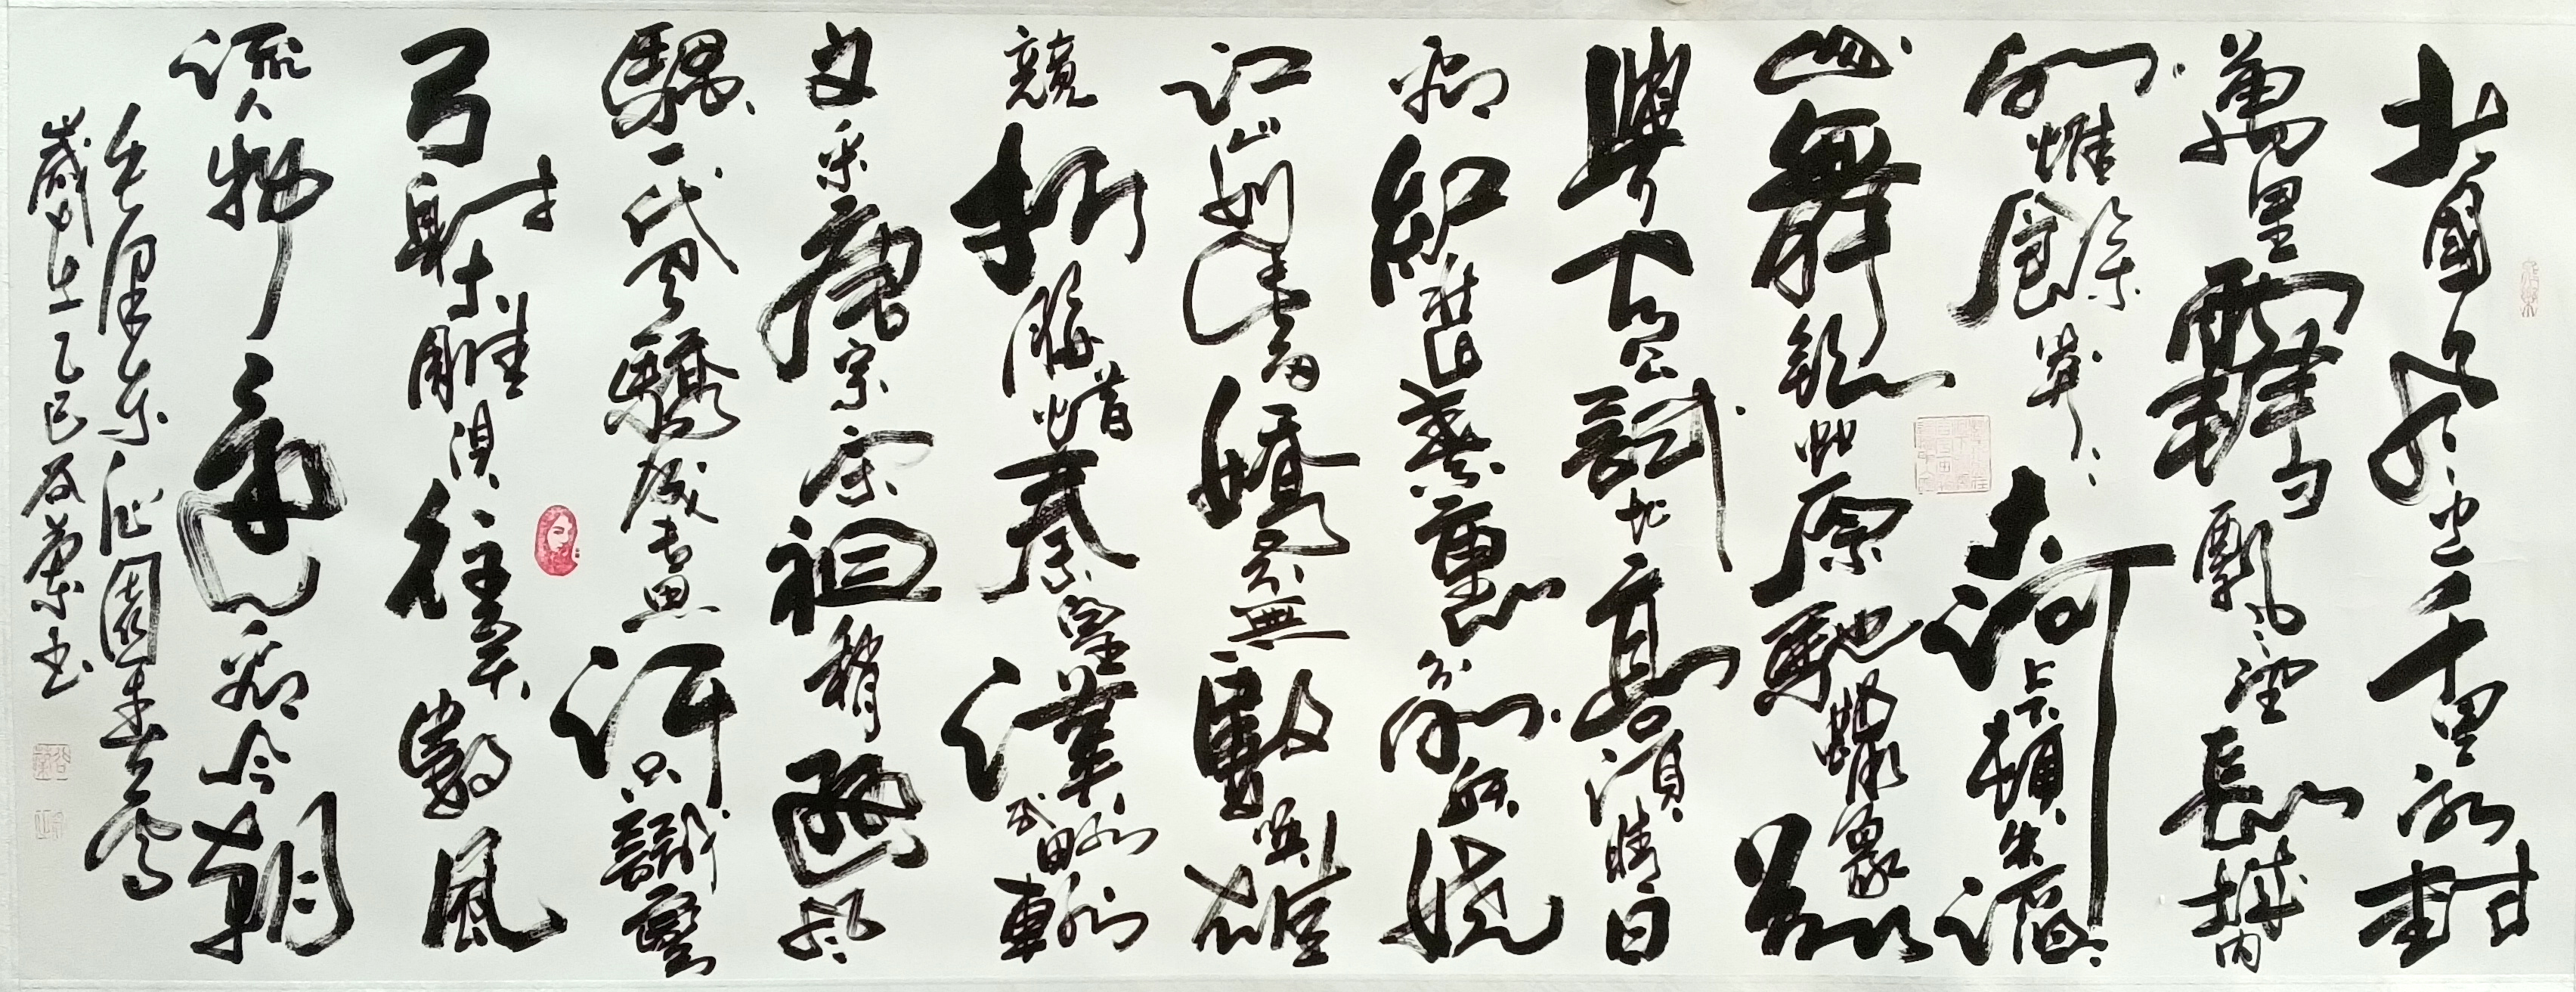 北國風光千里冰封
萬里雪飄望長城內
外惟餘莽莽大河上下頓失滔滔
山舞銀蛇原馳蠟象欲
與天公試比高須晴日
看紅裝素裹分外妖嬈
江山如此多嬌引無數英雄
競折腰惜秦皇漢武略輸
文采唐宗宋祖稍遜風
騷一代天驕成吉思汗只識彎
弓射大雕俱往矣數風
流人物還看今朝
毛澤東沁園春雪
歲在乙巳 書